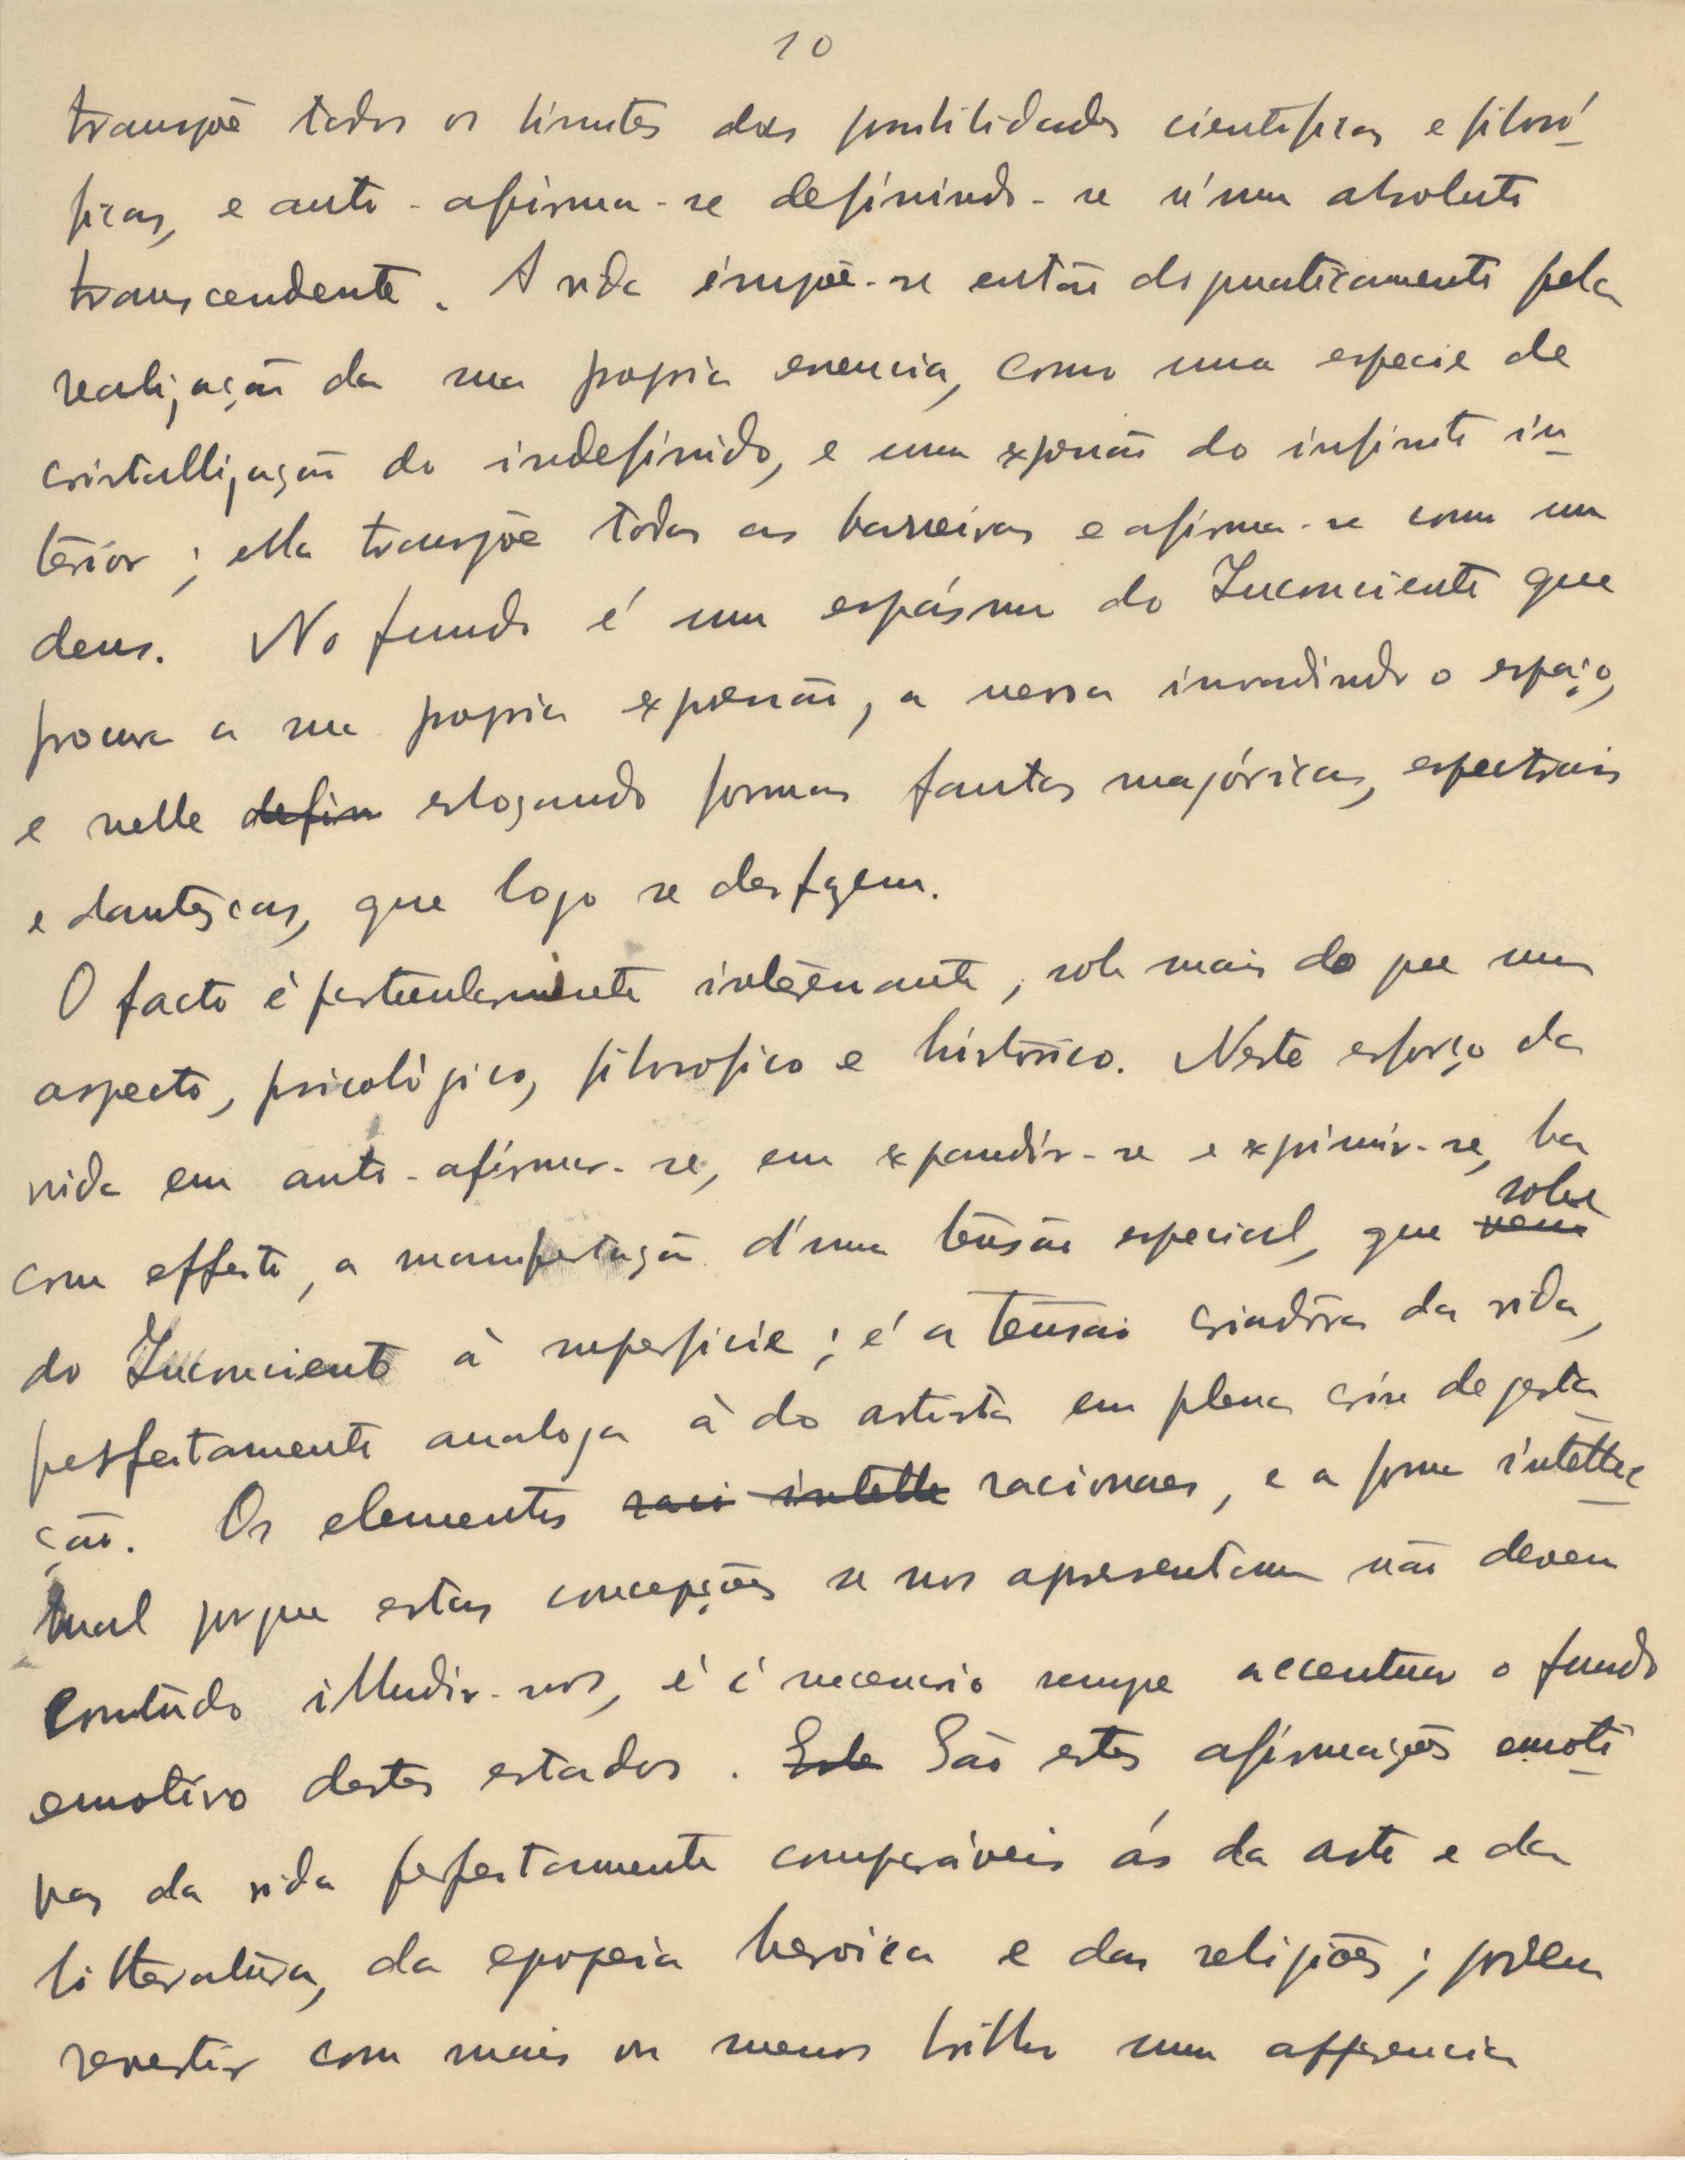 10
transpõe todos os limites das possibilidades cientificas e filosó-
ficas, e auto-afirma-se definindo-se n'um absoluto
transcendente. A vida impõe-se então dogmaticamente pela
realização da sua propria essencia, como uma especie de
cristallização do indefinido, e uma expressão do infinito in-
terior; ella transpõe todas as barreiras e afirma-se como um
deus. No fundo é um espásmo do Inconciente que
procura a sua propria expressão, a nevroa invadindo o espaço,
e nelle defin esboçando formas fantasmagóricas, espectrais
e dantescas, que logo se desfazem.
O facto é particularmente interessante, sob mais do que um
aspecto, psicológico, filosofico e histórico. Neste esforço da
vida em auto-afirmar-se, em expandir-se e exprimir-se, ha
com effeito, a manifestação d'uma tensão especial, que vem sobe
do Inconciente à superficie; é a tensão criadôra da vida,
perfeitamente analoga à do artista em plena crise de gesta-
ção. Os elementos raci intelle racionaes, e a forma intellec-
tual porque estas concepções se nos apresentam não devem
contudo illudir-nos, é é necessario sempre accentuar o fundo
emotivo destes estados. Este São estas afirmações emoti-
vas da vida perfeitamente comparáveis ás da arte e da
litteratura, da epopeia heroica e das religiões; podem
revestir com mais ou menos brilho uma apparencia